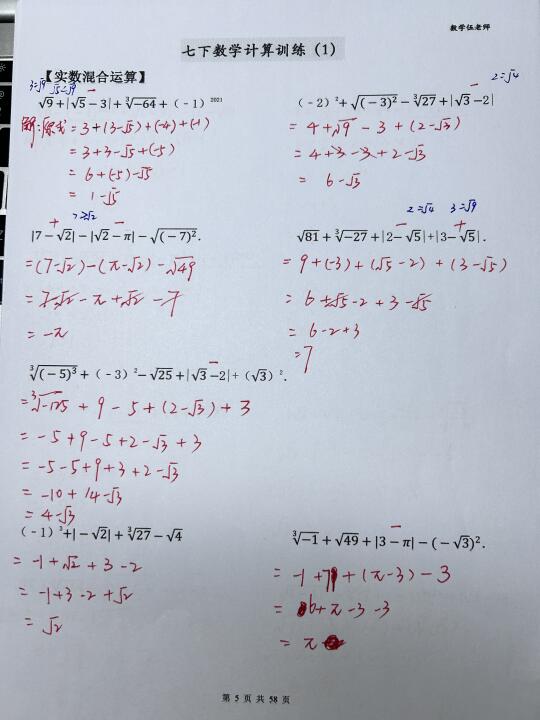 数学伍老师
七下数学计算训练（1）
【实数混合运算】
3=√9 √5<√9 −
√9+|√5−3|+∛−64+（-1）²⁰²¹
解：原式=3+(3-√5)+(-4)+(-1)
=3+3-√5+(-5)
=6+(-5)-√5
=1-√5
2=√4
−
（-2）²+√(−3)²−∛27+|√3−2|
=4+√9-3+(2-√3)
=4+3-3+2-√3
6-√3
+ 7>√2 −
|7−√2|−|√2−π|−√(−7)².
=(7-√2)-(π-√2)-√49
=7-√2-π+√2-7
=-π
2=√4 3=√9
− +
√81+∛−27+|2−√5|+|3−√5|.
=9+(-3)+(√5-2)+(3-√5)
=6+√5-2+3-√5
=6-2+3
=7
−
∛(−5)³+（-3）²−√25+|√3−2|+（√3）².
=∛-125+9-5+(2-√3)+3
=-5+9-5+2-√3+3
=-5-5+9+3+2-√3
=-10+14-√3
=4-√3
（-1）³+|−√2|+∛27−√4
=-1+√2+3-2
=-1+3-2+√2
=√2
−
∛−1+√49+|3−π|−(−√3)².
=-1+7+(π-3)-3
=6+π-3-3
=π
第 5 页 共 58 页